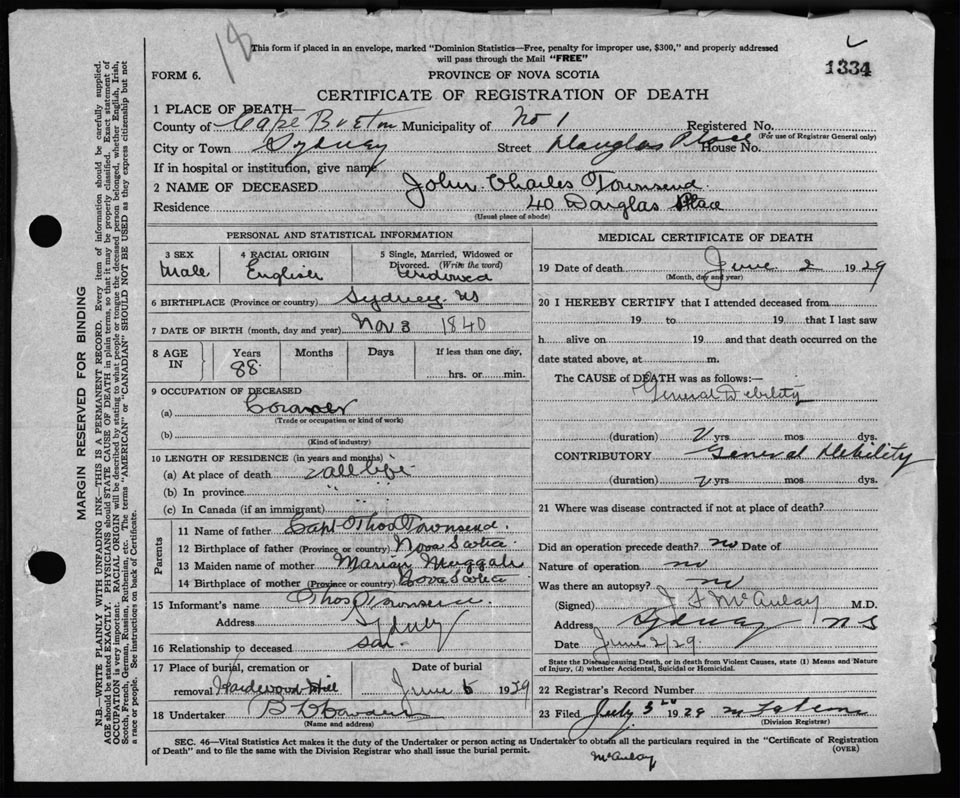 18
This form if placed in an envelope, marked "Dominion Statistics—Free, penalty for improper use, $300," and properly addressed
will pass through the Mail "FREE"
1334
FORM 6.
PROVINCE OF NOVA SCOTIA
CERTIFICATE OF REGISTRATION OF DEATH
1 PLACE OF DEATH—
County of Cape Breton Municipality of No 1 Registered No.
(For use of Registrar General only)
City or Town Sydney Street Douglas Place House No.
If in hospital or institution, give name
2 NAME OF DECEASED John Charles Townsend
Residence 40 Douglas Place
(Usual place of abode)
PERSONAL AND STATISTICAL INFORMATION
3 SEX
Male
4 RACIAL ORIGIN
English
5 Single, Married, Widowed or
Divorced. (Write the word)
Widowed
6 BIRTHPLACE (Province or country) Sydney NS
7 DATE OF BIRTH (month, day and year) Nov 3 1840
8 AGE IN
Years
88
Months
Days
If less than one day,
hrs. or min.
9 OCCUPATION OF DECEASED
(a) Coroner
(Trade or occupation or kind of work)
(b)
(Kind of industry)
10 LENGTH OF RESIDENCE (in years and months)
(a) At place of death all life
(b) In province " "
(c) In Canada (if an immigrant)
Parents
11 Name of father Capt Thos Townsend
12 Birthplace of father (Province or country) Nova Scotia
13 Maiden name of mother Marian Muggah
14 Birthplace of mother (Province or country) Nova Scotia
15 Informant's name Thos Townsend
Address Sydney
16 Relationship to deceased son
17 Place of burial, cremation or
removal Hardwood Hill
Date of burial
June 5 1929
18 Undertaker
(Name and address)
MEDICAL CERTIFICATE OF DEATH
19 Date of death June 2 1929
(Month, day and year)
20 I HEREBY CERTIFY that I attended deceased from
19 to 19 that I last saw
h alive on 19 and that death occurred on the
date stated above, at m.
The CAUSE of DEATH was as follows:—
General Debility
(duration) 2 yrs mos dys.
CONTRIBUTORY General Debility
(duration) 2 yrs mos dys.
21 Where was disease contracted if not at place of death?
Did an operation precede death? no Date of
Nature of operation no
Was there an autopsy? no
(Signed) J F McAulay M.D.
Address Sydney N S
Date June 2/29
State the Disease causing Death, or in death from Violent Causes, state (1) Means and Nature
of Injury, (2) whether Accidental, Suicidal or Homicidal.
22 Registrar's Record Number
23 Filed July 3rd 1929
(Division Registrar)
SEC. 46—Vital Statistics Act makes it the duty of the Undertaker or person acting as Undertaker to obtain all the particulars required in the "Certificate of Registration
of Death" and to file the same with the Division Registrar who shall issue the burial permit.
(OVER)
McAulay
MARGIN RESERVED FOR BINDING
N.B.—WRITE PLAINLY WITH UNFADING INK—THIS IS A PERMANENT RECORD. Every item of information should be carefully supplied.
AGE should be stated EXACTLY. PHYSICIANS should STATE CAUSE OF DEATH in plain terms, so that it may be properly classified. Exact statement of
OCCUPATION is very important. RACIAL ORIGIN will be described by stating to what people or tongue the deceased person belonged, whether English, Irish,
Scotch, French, German, Russian, Ruthenian, etc. The terms "AMERICAN" or "CANADIAN" SHOULD NOT BE USED as they express citizenship but not
a race or people. See instructions on back of Certificate.